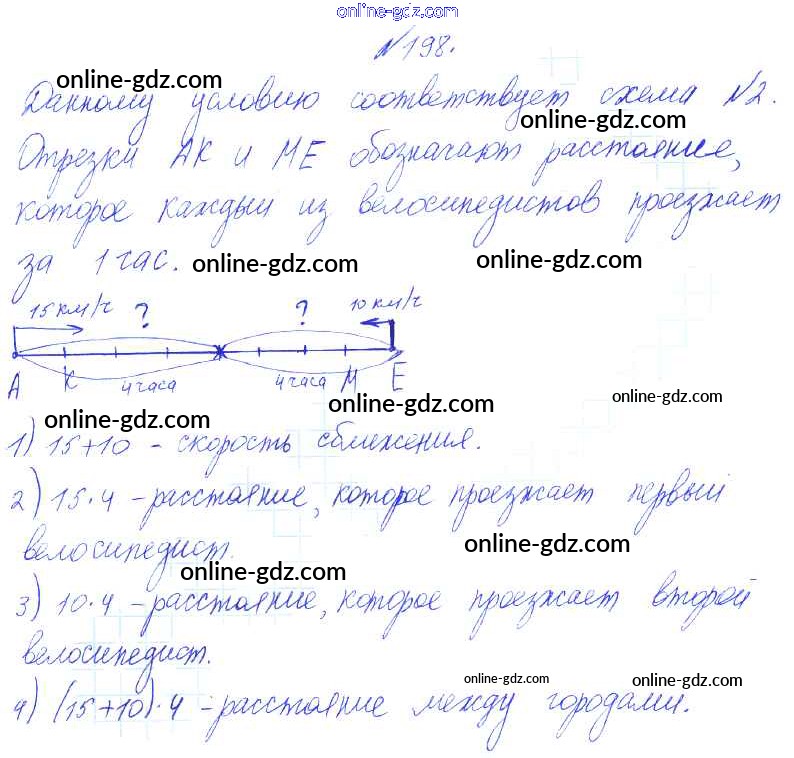 online-gdz.com
№198.
online-gdz.com
Данному условию соответствует схема №2.
online-gdz.com
Отрезки АК и МЕ обозначают расстояние,
которое каждый из велосипедистов проезжает
за 1 час. online-gdz.com online-gdz.com
15 км/ч ? ? 10 км/ч
А К 4 часа 4 часа М Е
online-gdz.com online-gdz.com online-gdz.com
1) 15+10 - скорость сближения.
2) 15·4 - расстояние, которое проезжает первый
велосипедист. online-gdz.com
online-gdz.com
3) 10·4 - расстояние, которое проезжает второй
велосипедист.
online-gdz.com online-gdz.com
4) (15+10)·4 - расстояние между городами.